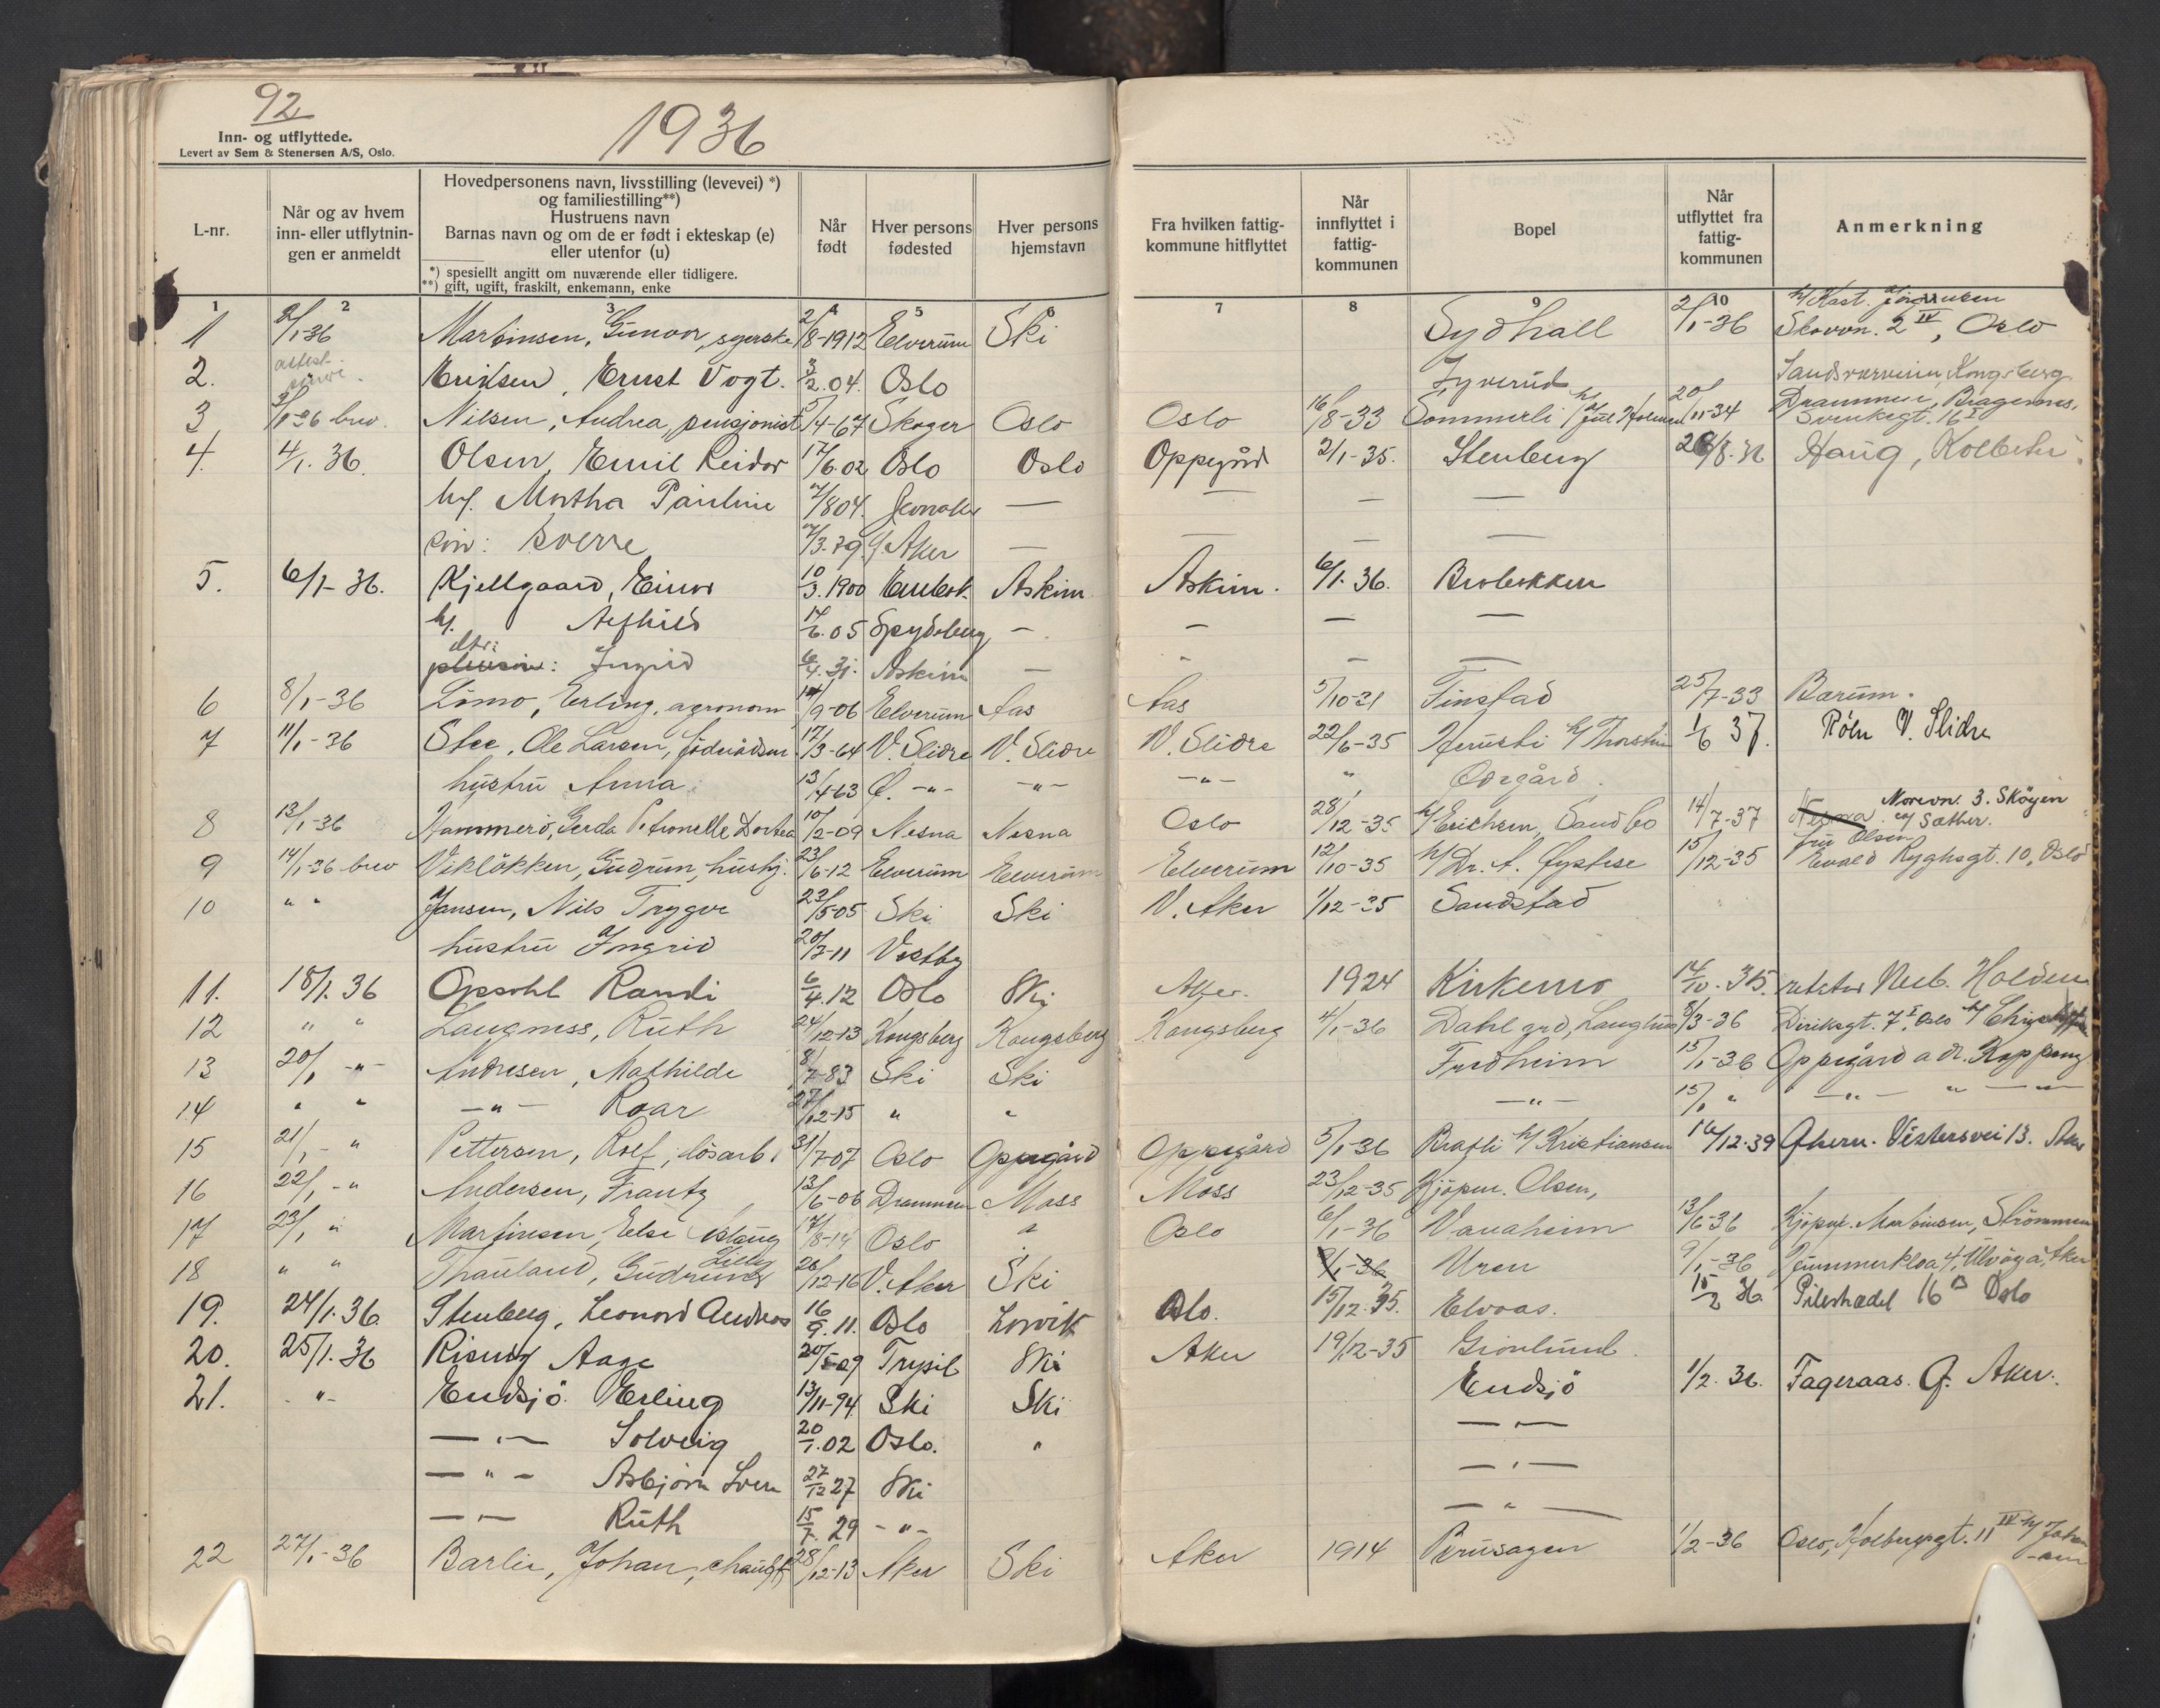 92
Inn- og utflyttede.
Levert av Sem & Stenersen A/S, Oslo.
1936
L-nr.
Når og av hvem inn- eller utflytnin-gen er anmeldt
Hovedpersonens navn, livsstilling (levevei) *)
og familiestilling**)
Hustruens navn
Barnas navn og om de er født i ekteskap (e)
eller utenfor (u)
*) spesiellt angitt om nuværende eller tidligere.
**) gift, ugift, fraskilt, enkemann, enke
Når født
Hver persons fødested
Hver persons hjemstavn
Fra hvilken fattig-kommune hitflyttet
Når innflyttet i fattig-kommunen
Bopel
Når utflyttet fra fattig-kommunen
Anmerkning
1 2 3 4 5 6 7 8 9 10 11
1 2/1-36 Martinsen, Gunvor, syerske 2/8-1912 Elverum Ski Sydhall 2/1-36 Skovvn. 2 IV, Oslo
2. Eriksen, Ernst Vogt. 3/2.04. Oslo Kongsberg
3 3/1-36 brev. Nilsen, Andrea, pensjonist 5/4-67 Skoger Oslo Oslo 16/8-33 Sommerli 20/11-34 Drammen, Bragernes, Svenksgt. 16 I
4. 4/1. 36. Olsen, Emil Reidar 17/6.02 Oslo Oslo Oppegård 2/1-35. Stenberg Haug, Kolbotn.
h/. Martha Pauline 7/8 04. — — — —
søn: Sverre Aker — — — —
5. 6/1-36. Kjellgaard, Einar 10/3.1900 Askim Askim. 6/1.36. Brobekken
h/. 17/6.05 Spydeberg — — — —
dtr: Ingrid 6/4.31. Askim — — —
6 8/1-36 Lömo, Erling, agronom /9-06 Elverum Aas Aas 5/10-31 Finstad 25/7-33 Bærum.
7 11/1-36 Stee, Ole Larsen, 17/3-64 V. Slidre V. Slidre V. Slidre 22/6-35 1/6 37. Røln V. Slidre
hustru Anna 13/4-63 Ø. -"- -"- -"- " Odegård.
8 13/1-36 Hammerö, Gerda Petronelle Dortea 10/2-09 Nesna Nesna Oslo 28/12-35 h/ Erichsen, Sandbo 14/7-37 Nesna Norevn. 3. Skøyen c/ Sæther.
9 14/1-36 brev Viklökken, Gudrun, hushj. 23/6-12 Elverum Elverum Elverum 12/10-35 h/ Dr. A. Øystese 15/12-35 fru Olsen Evald Ryghsgt. 10, Oslo
10 " " Jansen, Nils Trygve 23/5-05 Ski Ski V. Aker 1/12-35 Sandstad
hustru Ingrid 20/3-11 Vestby
11. 18/1. 36 Opsahl Randi 6/4.12 Oslo Ski Aker. 1924 Kirkemo 14/10.35. Holden
12 " " Langnæss, Ruth 24/12-13 Kongsberg Kongsberg Kongsberg 4/1-36 Dahl grd, Langhus 8/3-36 Diriksgt. 7 I, Oslo
13 20/1 -"- Andresen, Mathilde 8/7-83 Ski Ski Fredheim 15/1-36 Oppegård a dr. Kappang
14 " " -"- Roar 27/12-15 " " -"- 15/1 " -"- " -"-
15 21/1 - " Pettersen, Rolf, lösarb. 31/7-07 Oslo Oppegård Oppegård 5/1-36 Bratli h/ Kristiansen 16/12-39 Vestersvei 13. Aker
16 22/1 -" Andersen, Frantz 13/6-06 Drammen Moss Moss 23/12-35 Kjöpm. Olsen,
17 23/1 " Martinsen, Else Aslaug 17/8-14 Oslo " Oslo 6/1-36 Vanaheim 13/6-36 Kjöpm. Martinsen, Strömmen
18 " " Thauland, Gudrun Lilly 26/12-16 V. Aker Ski 9/1-36 Uren 9/1-36 4, Ulvöya, Aker
19. 24/1.36 Stenberg, Leonard Andreas 16/9.11. Oslo Larvik Oslo. 15/12.35. Elvaas. 15/2 36 Pilestrædet 16 B Oslo
20. 25/1.36 Rising Aage 20/5-09 Trysil Ski Aker 19/12-35 Grønlund.
21. -"- Endsjö Erling 13/11-94. Ski Ski Endsjö 1/2.36. Fageraas. Ø. Aker.
—"— Solveig 20/1.02 Oslo. " —"—
—"— Asbjörn Sven 27/12 27 Ski —"—
—"— Ruth 15/7. 29 -"- —"—
22 27/1-36 Barlie, Johan, chauff. 28/12-13 Aker Ski Aker 1914 Perusagen 1/2-36 Oslo, Holbergsgt. 11 IV h/ Johan-sen